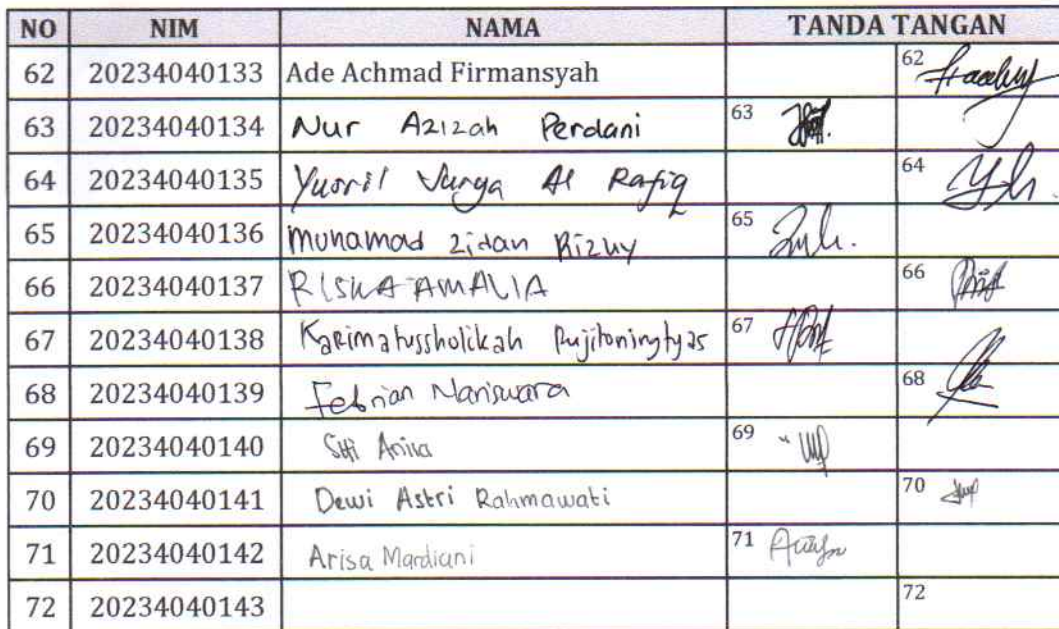 NO NIM NAMA TANDA TANGAN
62 20234040133 Ade Achmad Firmansyah 62
63 20234040134 Nur Azizah Perdani 63
64 20234040135 Yusril Surya Al Rafiq 64
65 20234040136 Muhamad Zidan Rizuy 65
66 20234040137 RISKA AMALIA 66
67 20234040138 Karimatussholikah Pujitoningtyas 67
68 20234040139 Febrian Nariswara 68
69 20234040140 Siti Anisa 69
70 20234040141 Dewi Astri Rahmawati 70
71 20234040142 Arisa Mardiani 71
72 20234040143 72